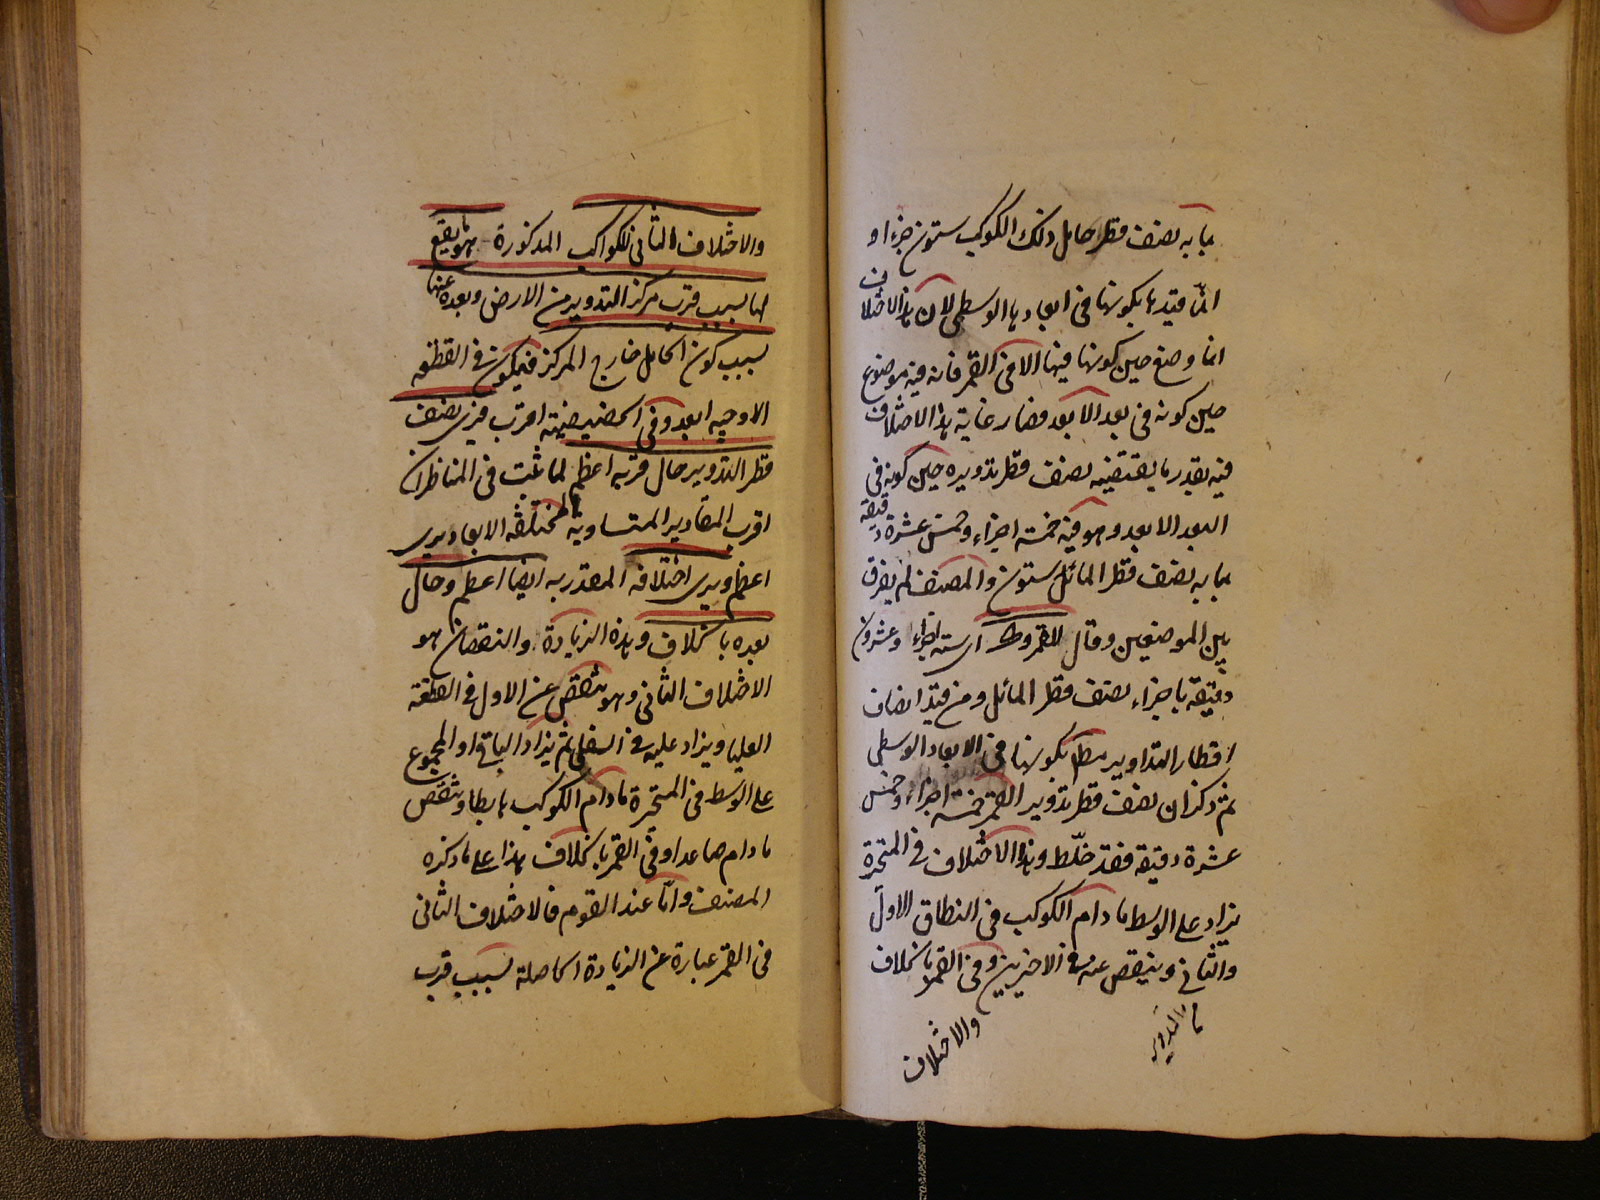 بما به نصف قطر حامل ذلك الكوكب ستون جزءا و
انما قيدها بكونها فى ابعادها الوسطى لان هذا الاختلاف
انما وضع حين كونها فيها الا فى القمر فانه فيه موضوع
حين كونه فى بعد الابعد فصار غاية هذا الاختلاف
فيه بقدر ما يقتضيه نصف قطر تدويره حين كونه فى
البعد الابعد وهو فيه خمسة اجزاء وخمس عشرة دقيقة
بما به نصف قطر المائل ستون والمصنف لم يفرق
بين الموضعين وقال للقمر و ك اى ستة اجزاء وعشرون
دقيقة باجزاء نصف قطر المائل ومن قيد انصاف
اقطار التداوير مطلقا بكونها فى الابعاد الوسطى
ثم ذكر ان نصف قطر تدوير القمر خمسة اجزاء وخمس
عشرة دقيقة فقد خلّط وهذا الاختلاف فى المتحيرة
يزاد على الوسط ما دام الكوكب فى النطاق الاول
والثانى وينقص عنه فى الاخيرين وفى القمر بالخلاف
م والتدوير
والاختلاف
والاختلاف الثانى للكواكب المذكورة هو ما يقع
لها بسبب قرب مركز التدوير من الارض وبعده عنها
بسبب كون الحامل خارج المركز فيكون فى القطعة
الاوجية ابعد وفى الحضيضية اقرب فيرى نصف
قطر التدوير حال قربه اعظم لما ثبت فى المناظر ان
اقرب المقادير المتساوية المختلفة الابعاد يرى
اعظم ويرى اختلافه المقدر به ايضا اعظم وحال
بعده بالخلاف وهذه الزيادة والنقصان هو
الاختلاف الثانى وهو ينقص عن الاول فى القطعة
العليا ويزاد عليه فى السفلى ثم يزاد الباقى او المجموع
على الوسط فى المتحيرة ما دام الكوكب هابطا وينقص
ما دام صاعدا وفى القمر بالخلاف هذا على ما ذكره
المصنف واما عند القوم فالاختلاف الثانى
فى القمر عبارة عن الزيادة الحاصلة بسبب قرب